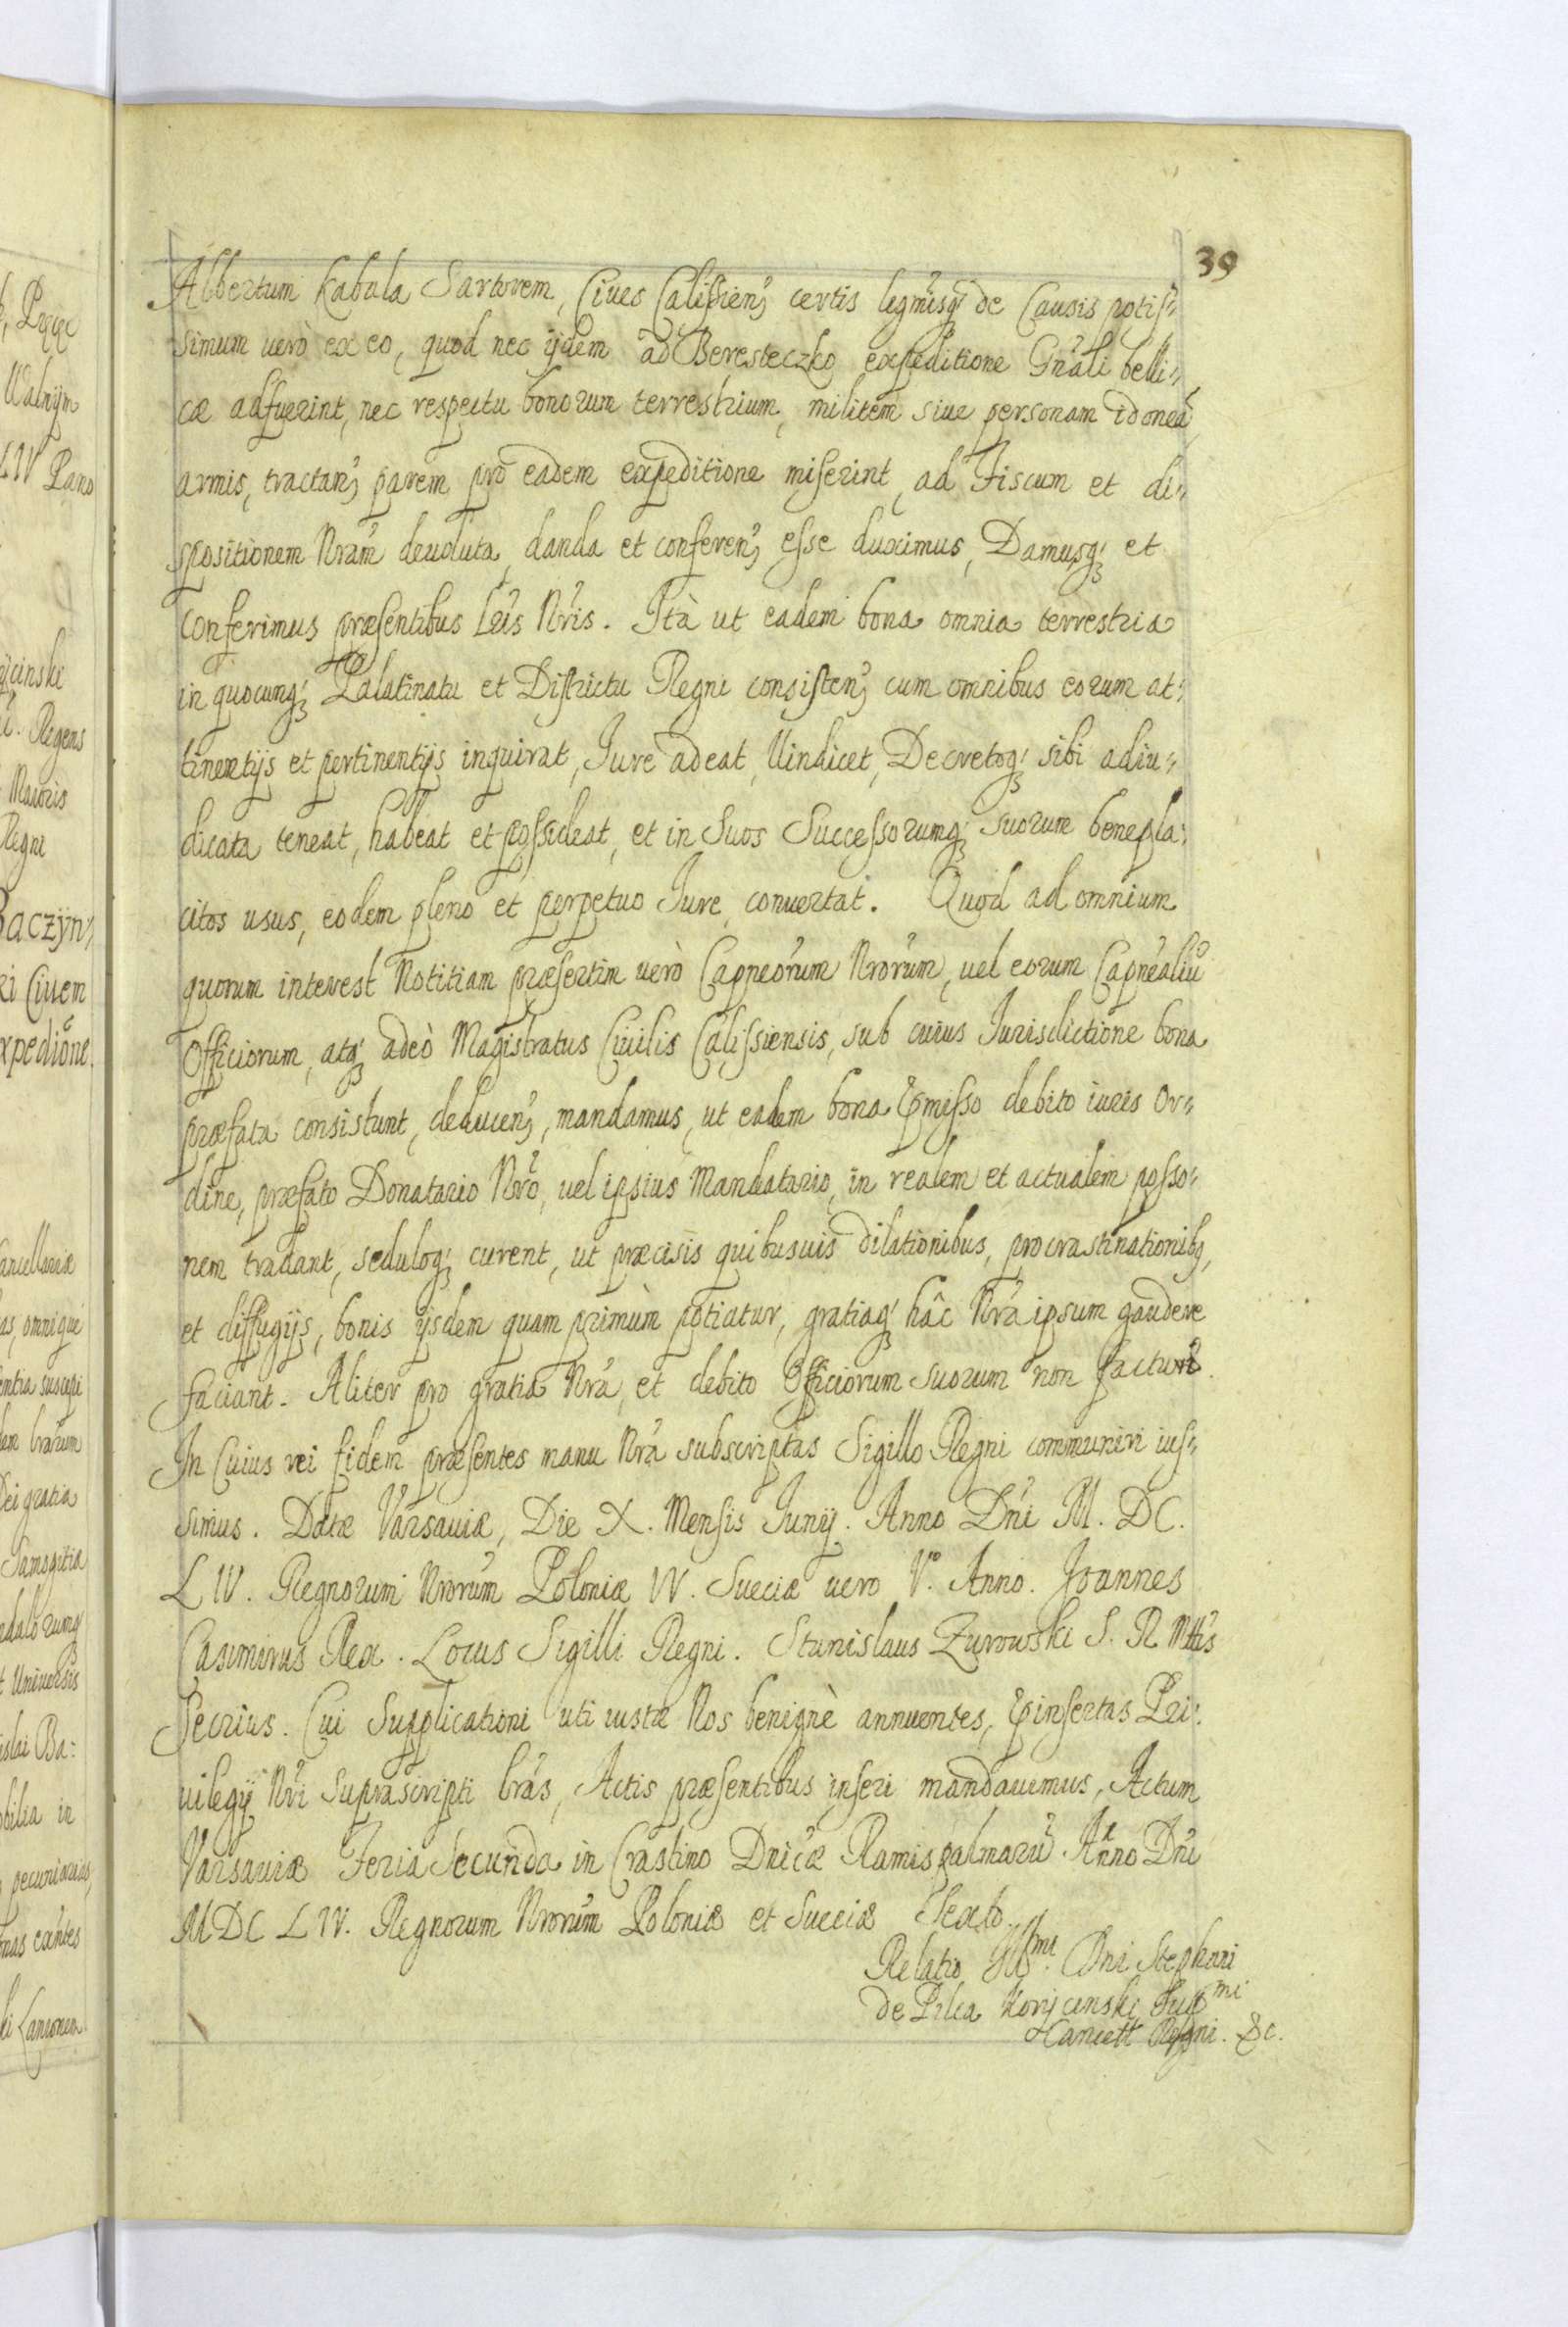 39
Albertum Kabala Sartorem, Ciues Calissien; certis legmisq; de Causis potis:
simum uerò ex eo, quod nec ijdem ad Beresteczko expeditione Gnali belli:
cæ adfuerint, nec respectu bonorum terrestrium, militem siue personam idoneã
armis, tractan; parem pro eadem expeditione miserint, ad Fiscum et di:
spositionem Nram deuoluta, danda et conferen; esse duximus, Damusq; et
conferimus præsentibus Lris Nris. Ità ut eadem bona omnia terrestria
in quocunq; Palatinatu et Districtu Regni consisten; cum omnibus eorum at:
tinentijs et pertinentijs inquirat, Jure adeat, Uindicet, Decretoq; sibi adiu:
dicata teneat, habeat et possideat, et in Suos Successorumq; suorum benepla:
citos usus, eodem pleno et perpetuo Jure, conuertat. Quod ad omnium
quorum interest Notitiam præsertim uerò Capneorum Nrorum, uel eorum Capnealiũ
Officiorum, atq; adeò Magistratus Ciuilis Calissiensis, sub cuius Jurisdictione bona
præfata consistunt, deducen;, mandamus, ut eadem bona præmisso debito iuris Or:
dine, præfato Donatario Nro, uel ipsius Mandatario, in realem et actualem posso:
nem tradant, seduloq; curent, ut præcisis quibusuis dilationibus, procrastinationibq,
et diffugijs, bonis ijsdem quam primùm potiatur, gratiaq; hâc Nra ipsum gaudere
faciant. Aliter pro gratia Nra, et debito Officiorum suorum non facturi.
In Cuius rei fidem præsentes manu Nra subscriptas Sigillo Regni communiri ius:
simus. Datæ Varsauiæ, Die X. Mensis Junij. Anno Dni M. DC.
LIV. Regnorum Nrorum Poloniæ VI. Sueciæ uero V.º Anno. Joannes
Casimirus Rex. Locus Sigilli Regni. Stanislaus Zurowski S. R Mttis
Secrius. Cui Supplicationi uti iustæ Nos benignè annuentes, præinsertas Pri:
uilegij Nri Suprascripti lras, Actis præsentibus inseri mandauimus, Actum
Varsauiæ Feria Secunda in Crastino Dnicæ Ramispalmarũ. Anno Dni
MDC LIV. Regnorum Nrorum Poloniæ et Sueciæ Sexto.
Relatio Illmi. Dni Stephani
de Pilca Korycinski Supmi
Cancell Regni. &c.